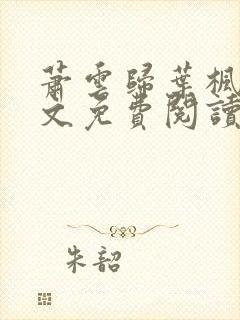 蕭雲歸葉楓
文免費閱讀
朱韶